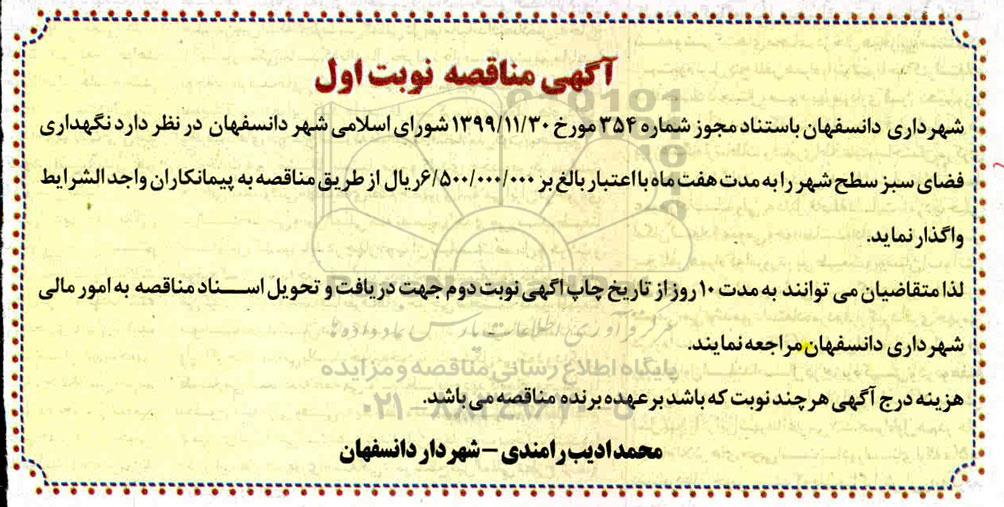 آگهی مناقصه نوبت اول
شهرداری دانسفهان باستناد مجوز شماره ۳۵۴ مورخ ۱۳۹۹/۱۱/۳۰ شورای اسلامی شهر دانسفهان در نظر دارد نگهداری
فضای سبز سطح شهر را به مدت هفت ماه با اعتبار بالغ بر ۶/۵۰۰/۰۰۰/۰۰۰ریال از طریق مناقصه به پیمانکاران واجد الشرایط
واگذار نماید.
لذا متقاضیان می توانند به مدت ۱۰ روز از تاریخ چاپ اگهی نوبت دوم جهت دریافت و تحویل اسناد مناقصه به امور مالی
مرکز فرآوری اطلاعات پارس نماد داده ها
شهرداری دانسفهان مراجعه نمایند.
پایگاه اطلاع رسانی مناقصه و مزایده
هزینه درج آگهی هر چند نوبت که باشد بر عهده برنده مناقصه می باشد.
۰۲۱-۸۸۳۴۹۶۷۰-۵
محمد ادیب رامندی – شهردار دانسفهان